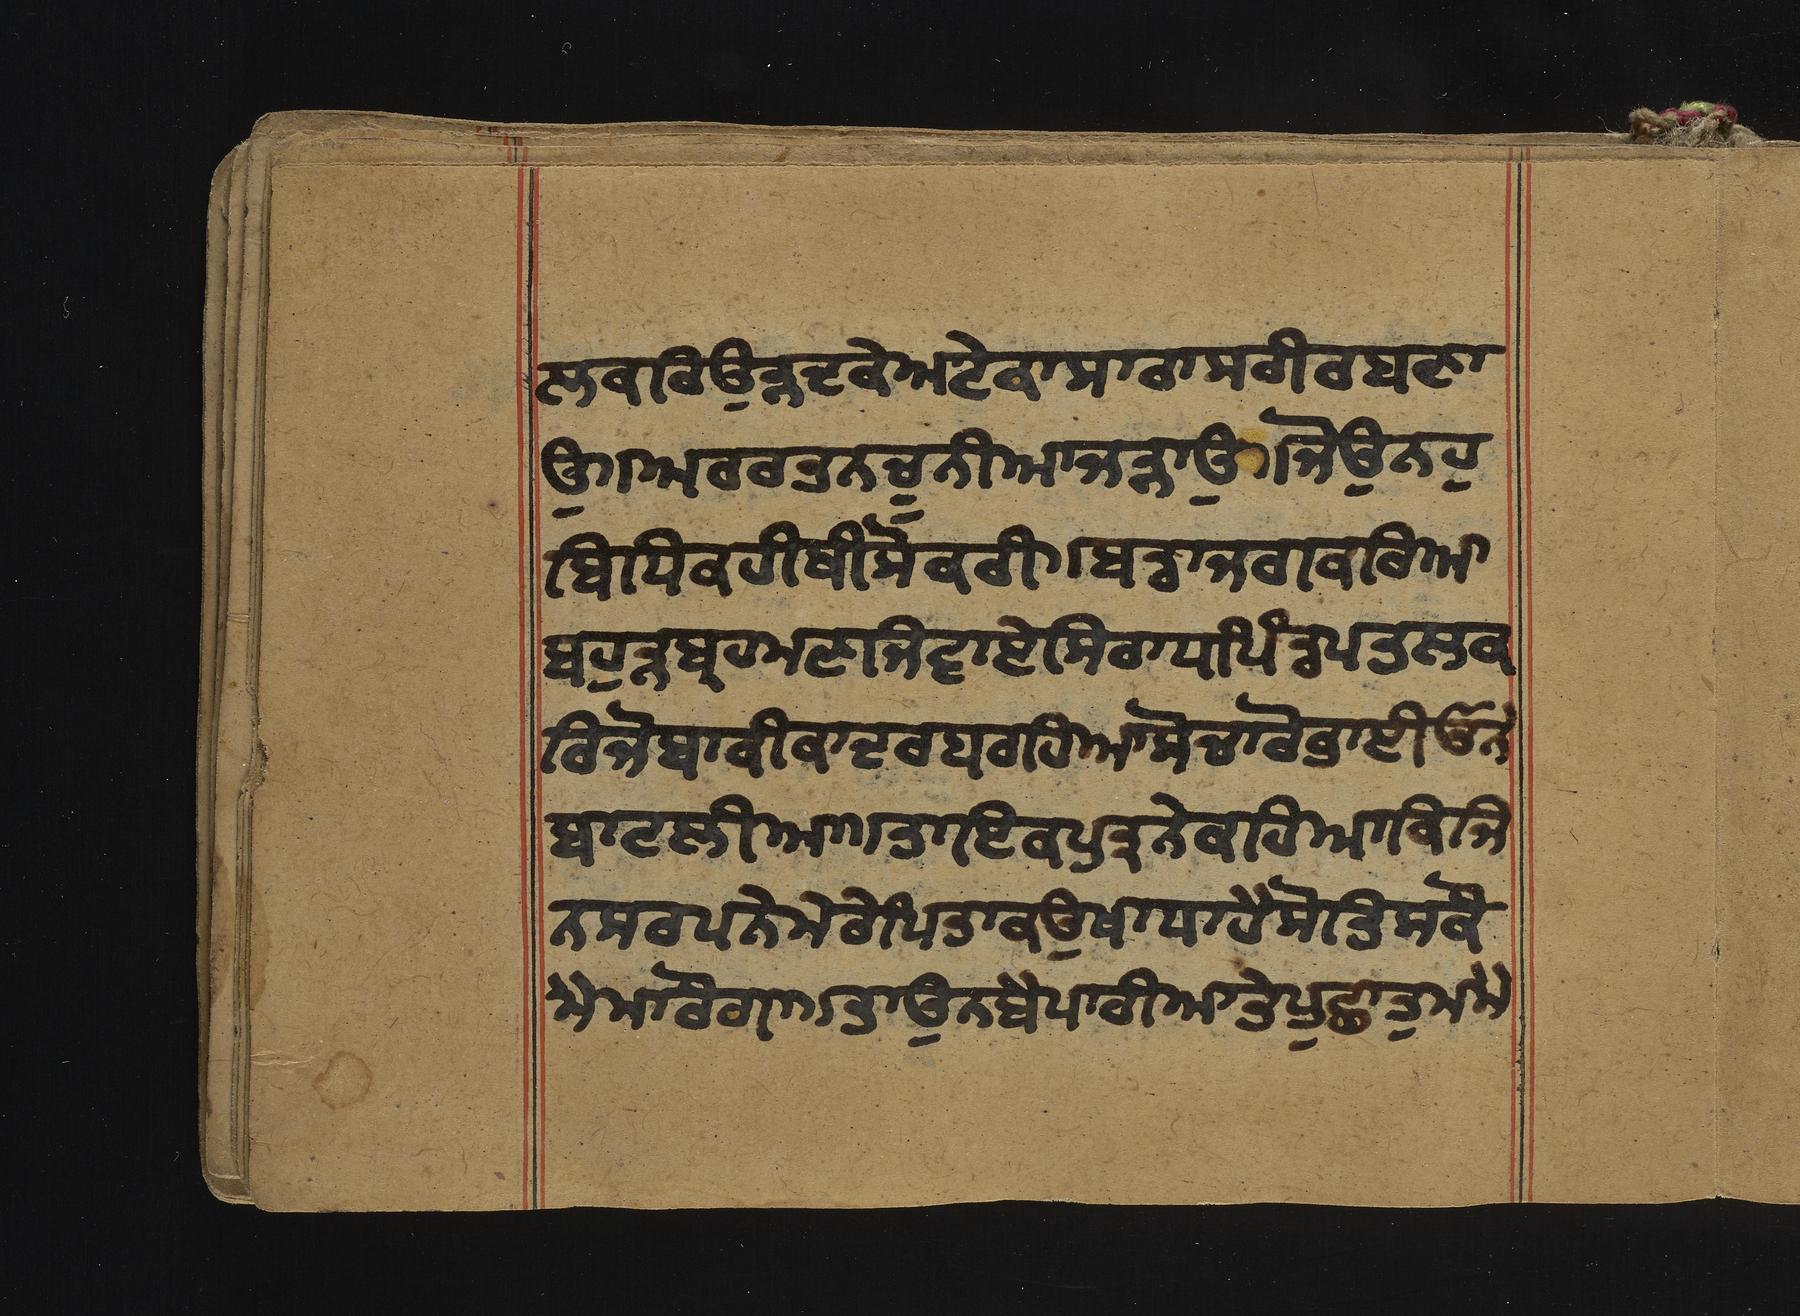 ਲਕਰਿਉੜਦਕੇਅਟੇਕਾਸਾਰਾਸਰੀਰਬਣਾ
ਉ।ਅਰਰਤਨਚੁਨੀਆਜੜਾਉ।ਜੋਉਨਹੁ
ਬਿਧਿਕਹੀਥੀਸੋਕਰੀ।ਬਡਾਜਗਕਰਿਆ
ਬਹੁੜਬ੍ਰਹਮਣਜਿਵਾਏਸਿਰਾਧਪਿੰਡਪਤਲਕ
ਰਿਜੋਬਾਕੀਕਾਦਰਬਰਹਿਆਸੋਚਾਰੋਭਾਈਓਨੇ
ਬਾਟਲੀਆ।ਤਾਇਕਪੁਤ੍ਰਨੇਕਹਿਆਕਿਜਿ
ਨਸਰਪਨੇਮੇਰੇਪਿਤਾਕਉਖਾਧਾਹੈਸੋਤਿਸਕੋ
ਮੈਮਾਰੋਗਾ।ਤਾਉਨਬੈਪਾਰੀਆਤੇਪੁਛਾਤੁਮਮੈ